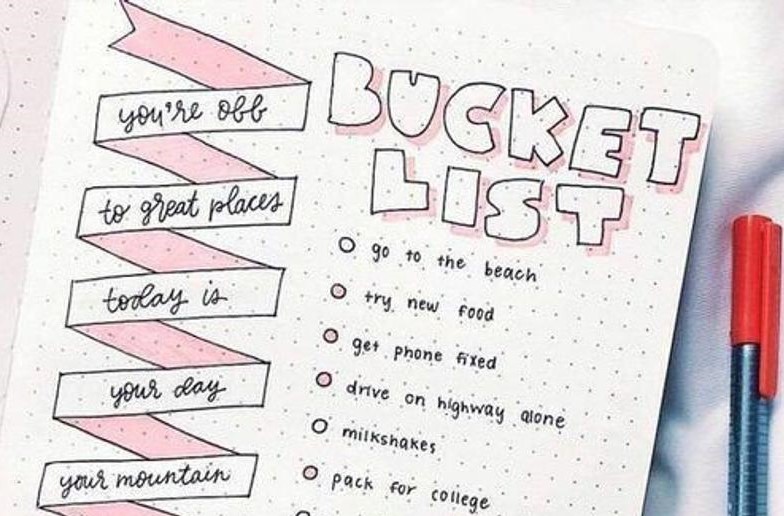 you're obb
to great places
today is
your day
your mountain
BUCKET
LIST
go to the beach
try new food
get phone fixed
drive on highway alone
milkshakes
pack for college